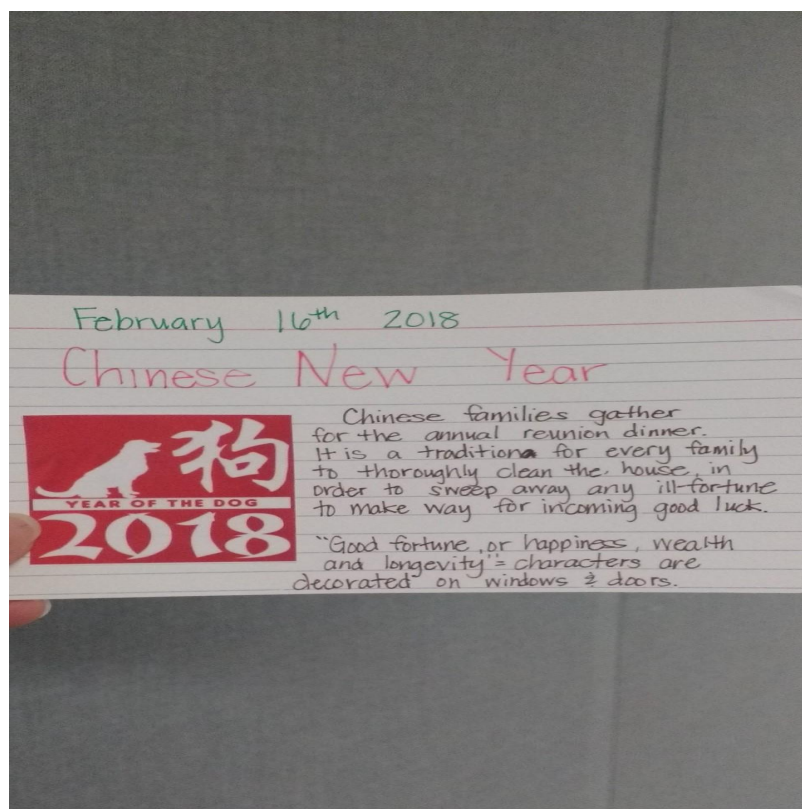 February 16th 2018
Chinese New Year
狗
YEAR OF THE DOG
2018
Chinese families gather
for the annual reunion dinner.
It is a tradition for every family
to thoroughly clean the house, in
order to sweep away any ill-fortune
to make way for incoming good luck.
"Good fortune, or happiness, wealth
and longevity" = characters are
decorated on windows & doors.